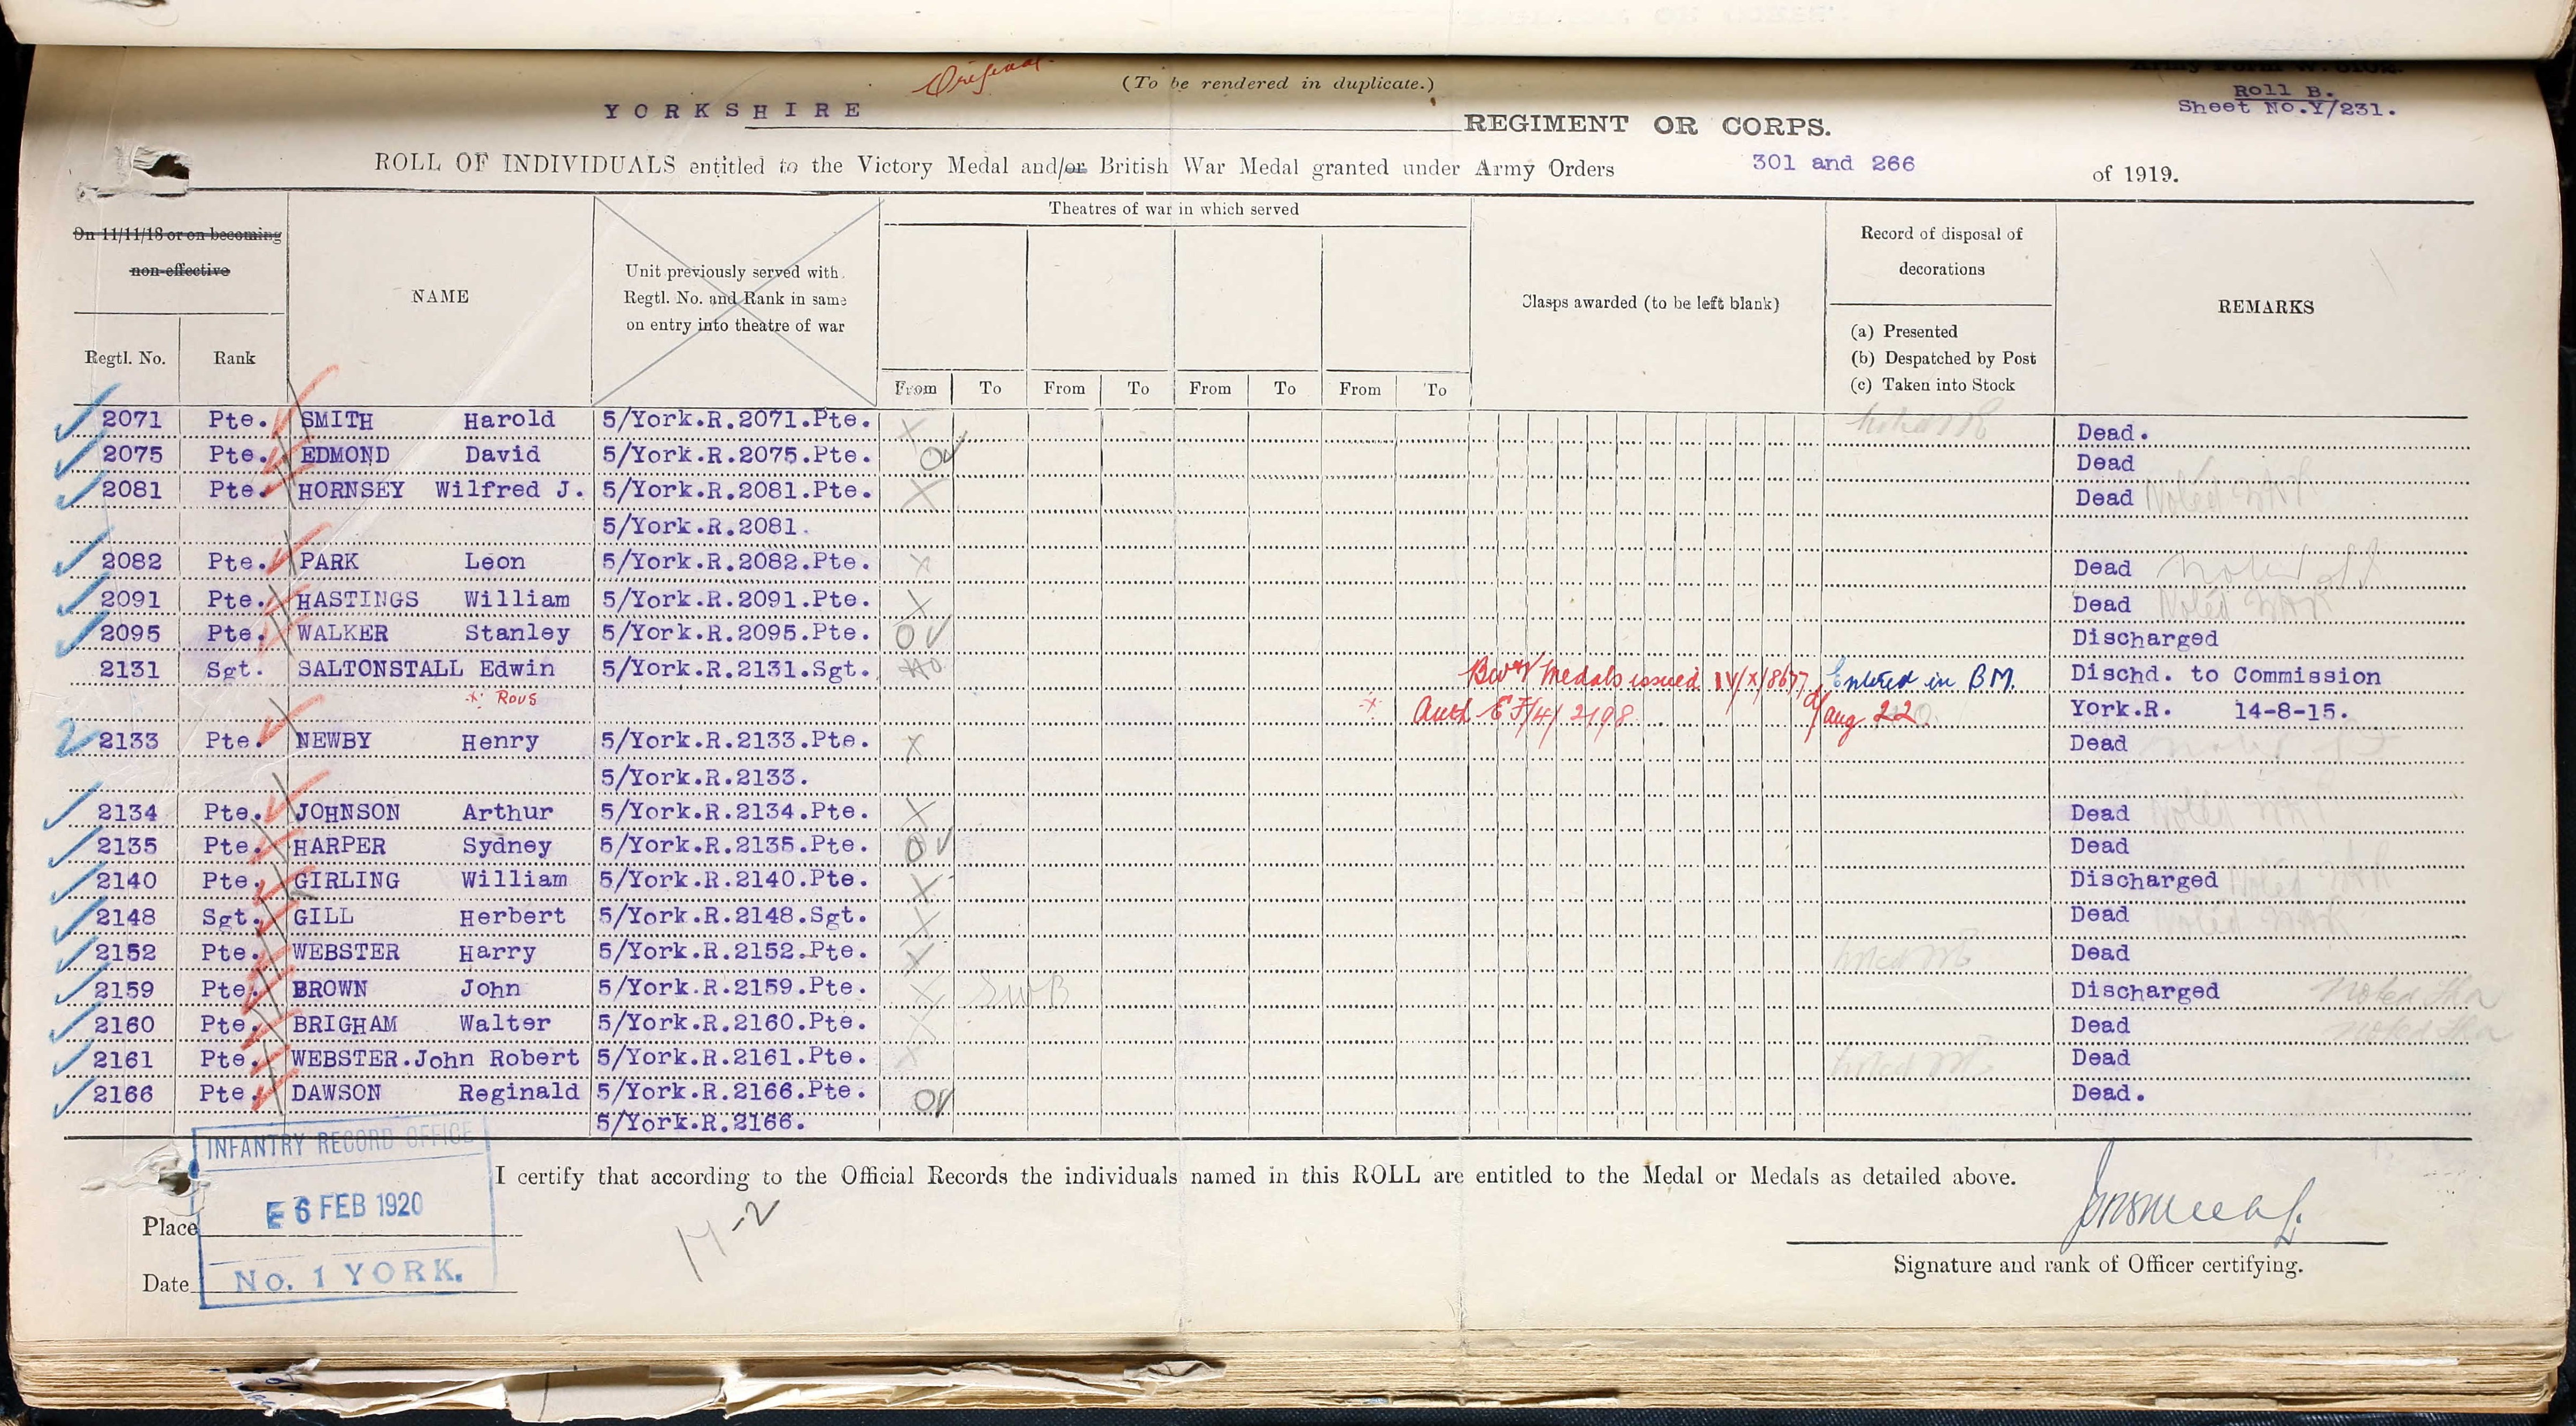 Original
(To be rendered in duplicate.)
Roll B.
Sheet No.Y/231.
YORKSHIRE REGIMENT OR CORPS.
ROLL OF INDIVIDUALS entitled to the Victory Medal and/or British War Medal granted under Army Orders 301 and 266 of 1919.
On 11/11/18 or on becoming non-effective
Regtl. No. Rank
NAME
Unit previously served with Regtl. No. and Rank in same on entry into theatre of war
Theatres of war in which served
From To From To From To From To
Clasps awarded (to be left blank)
Record of disposal of decorations
(a) Presented
(b) Despatched by Post
(c) Taken into Stock
REMARKS
2071 Pte. SMITH Harold 5/York.R.2071.Pte. X Dead.
2075 Pte. EDMOND David 5/York.R.2075.Pte. O Dead
2081 Pte. HORNSEY Wilfred J. 5/York.R.2081.Pte. X Dead Noted
5/York.R.2081.
2082 Pte. PARK Leon 5/York.R.2082.Pte. X Dead Noted
2091 Pte. HASTINGS William 5/York.R.2091.Pte. X Dead Noted
2095 Pte. WALKER Stanley 5/York.R.2095.Pte. O Discharged
2131 Sgt. SALTONSTALL Edwin 5/York.R.2131.Sgt. medals issued Entered in B.M. Dischd. to Commission
Auth EF/4/2198 Aug 22 York.R. 14-8-15.
2133 Pte. NEWBY Henry 5/York.R.2133.Pte. X Dead
5/York.R.2133.
2134 Pte. JOHNSON Arthur 5/York.R.2134.Pte. X Dead Noted
2135 Pte. HARPER Sydney 5/York.R.2135.Pte. O Dead
2140 Pte. GIRLING William 5/York.R.2140.Pte. X Discharged Noted
2148 Sgt. GILL Herbert 5/York.R.2148.Sgt. X Dead Noted
2152 Pte. WEBSTER Harry 5/York.R.2152.Pte. X Noted Dead
2159 Pte. BROWN John 5/York.R.2159.Pte. X SWB Discharged Noted
2160 Pte. BRIGHAM Walter 5/York.R.2160.Pte. X Dead Noted
2161 Pte. WEBSTER.John Robert 5/York.R.2161.Pte. X Noted Dead
2166 Pte. DAWSON Reginald 5/York.R.2166.Pte. O Dead.
5/York.R.2166.
INFANTRY RECORD OFFICE
I certify that according to the Official Records the individuals named in this ROLL are entitled to the Medal or Medals as detailed above.
6 FEB 1920
Place
Date
No. 1 YORK.
Signature and rank of Officer certifying.